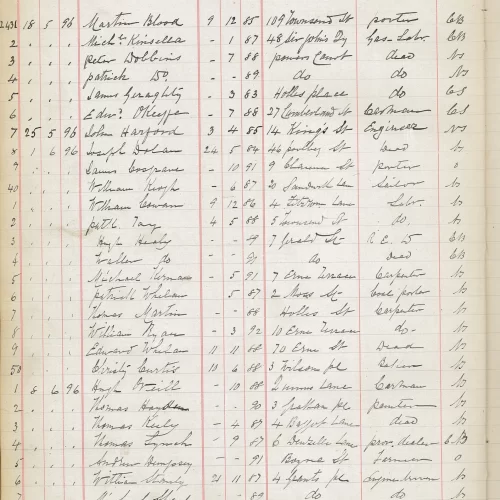 2431 18 5 96 Martin Blood 9 12 85 109 Townsend St porter CB
2 Michl. Kinsella - 1 87 48 Sir John's Qy Gas-Labr. CB
3 Peter Dobbins - 7 88 dead Ns
4 patrick Do. - - 89 do do Ns
5 James Geraghty - 3 83 Holles place do CS
6 Edwd. O'Keeffe - 7 88 27 Cumberland St Carman CS
7 25 5 96 John Harford 3 4 85 14 King's St Engineer Ns
8 1 6 96 Joseph Dolan 24 5 84 46 Dead Ns
9 James Cosgrave - 10 91 9 Clarence St porter o
40 William Keogh - 6 87 20 Sandwith Lane Sailor Ns
1 William Cowan 9 12 86 4 Fitzwm Lane Labr. Ns
2 4 5 88 5 Townsend St do. Ns
3 Hugh Healy - - 7 Gerald St CB
4 do - - 91 do Dead CB
5 Michael - 5 91 7 Erne Terrace Carpenter Ns
6 patrick Whelan 5 87 2 Moss St Coal porter Ns
7 Thomas Martin - - 88 Holles St Carpenter Ns
8 William Ryan - 3 92 10 Erne Terrace do- Ns
9 Edward Whelan 11 11 88 70 Erne St Dead Ns
50 Christy Curtis 10 6 88 3 Wilsons pl Ns
1 8 6 96 Hugh O'Neill - 10 88 Lane Carman Ns
2 Thomas Hayden - - 90 3 Grattan pl painter Ns
3 Thomas Kiely - 4 87 4 Bass Lane dead Ns
4 Thomas Lynch 9 87 6 Denzille Lane prov. dealer CB
5 Andrew Dempsey - - 91 Boyne St Farmer o
6 21 11 87 4 Grants pl Ns
7 - - 89 do do Ns